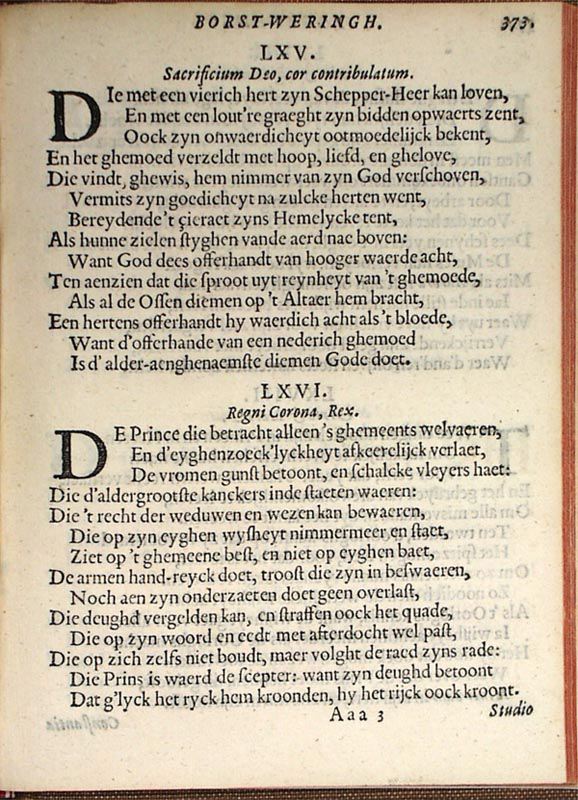 BORST-WERINGH. 373.
LXV.
Sacrificium Deo, cor contribulatum.
DIe met een vierich hert zyn Schepper-Heer kan loven,
En met een lout're graeght zyn bidden opwaerts zent,
Oock zyn onwaerdicheyt ootmoedelijck bekent,
En het ghemoed verzeldt met hoop, liefd, en ghelove,
Die vindt, ghewis, hem nimmer van zyn God verſchoven,
Vermits zyn goedicheyt na zulcke herten went,
Bereydende 't çieraet zyns Hemelycke tent,
Als hunne zielen ſtyghen vande aerd nae boven:
Want God dees offerhandt van hooger waerde acht,
Ten aenzien dat die ſproot uyt reynheyt van 't ghemoede,
Als al de Oſſen diemen op 't Altaer hem bracht,
Een hertens offerhandt hy waerdich acht als 't bloede,
Want d'offerhande van een nederich ghemoed
Is d' alder-aenghenaemſte diemen Gode doet.
LXVI.
Regni Corona, Rex.
DE Prince die betracht alleen 's ghemeents welvaeren,
En d'eyghenzoeck'lyckheyt afkeerlijck verlaet,
De vromen gunſt betoont, en ſchalcke vleyers haet:
Die d'aldergrootſte kanckers inde ſtaeten waeren:
Die 't recht der weduwen en wezen kan bewaeren,
Die op zyn eyghen wyſheyt nimmermeer en ſtaet,
Ziet op 't ghemeene beſt, en niet op eyghen baet,
De armen hand-reyck doet, trooſt die zyn in beſwaeren,
Noch aen zyn onderzaeten doet geen overlaſt,
Die deughd vergelden kan, en ſtraffen oock het quade,
Die op zyn woord en eedt met afterdocht wel paſt,
Die op zich zelfs niet boudt, maer volght de raed zyns rade:
Die Prins is waerd de ſcepter: want zyn deughd betoont
Dat g'lyck het ryck hem kroonden, hy het rijck oock kroont.
Aaa 3 Studio